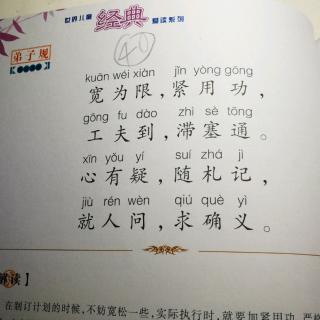 世界儿童 经典 爱读系列
40
弟子规
kuān wéi xiàn jǐn yòng gōng
宽为限,紧用功,
gōng fu dào zhì sè tōng
工夫到,滞塞通。
xīn yǒu yí suí zhá jì
心有疑,随札记,
jiù rén wèn qiú què yì
就人问,求确义。
解读】
在制订计划的时候,不妨宽松一些,实际执行时,就要加紧用功,严格